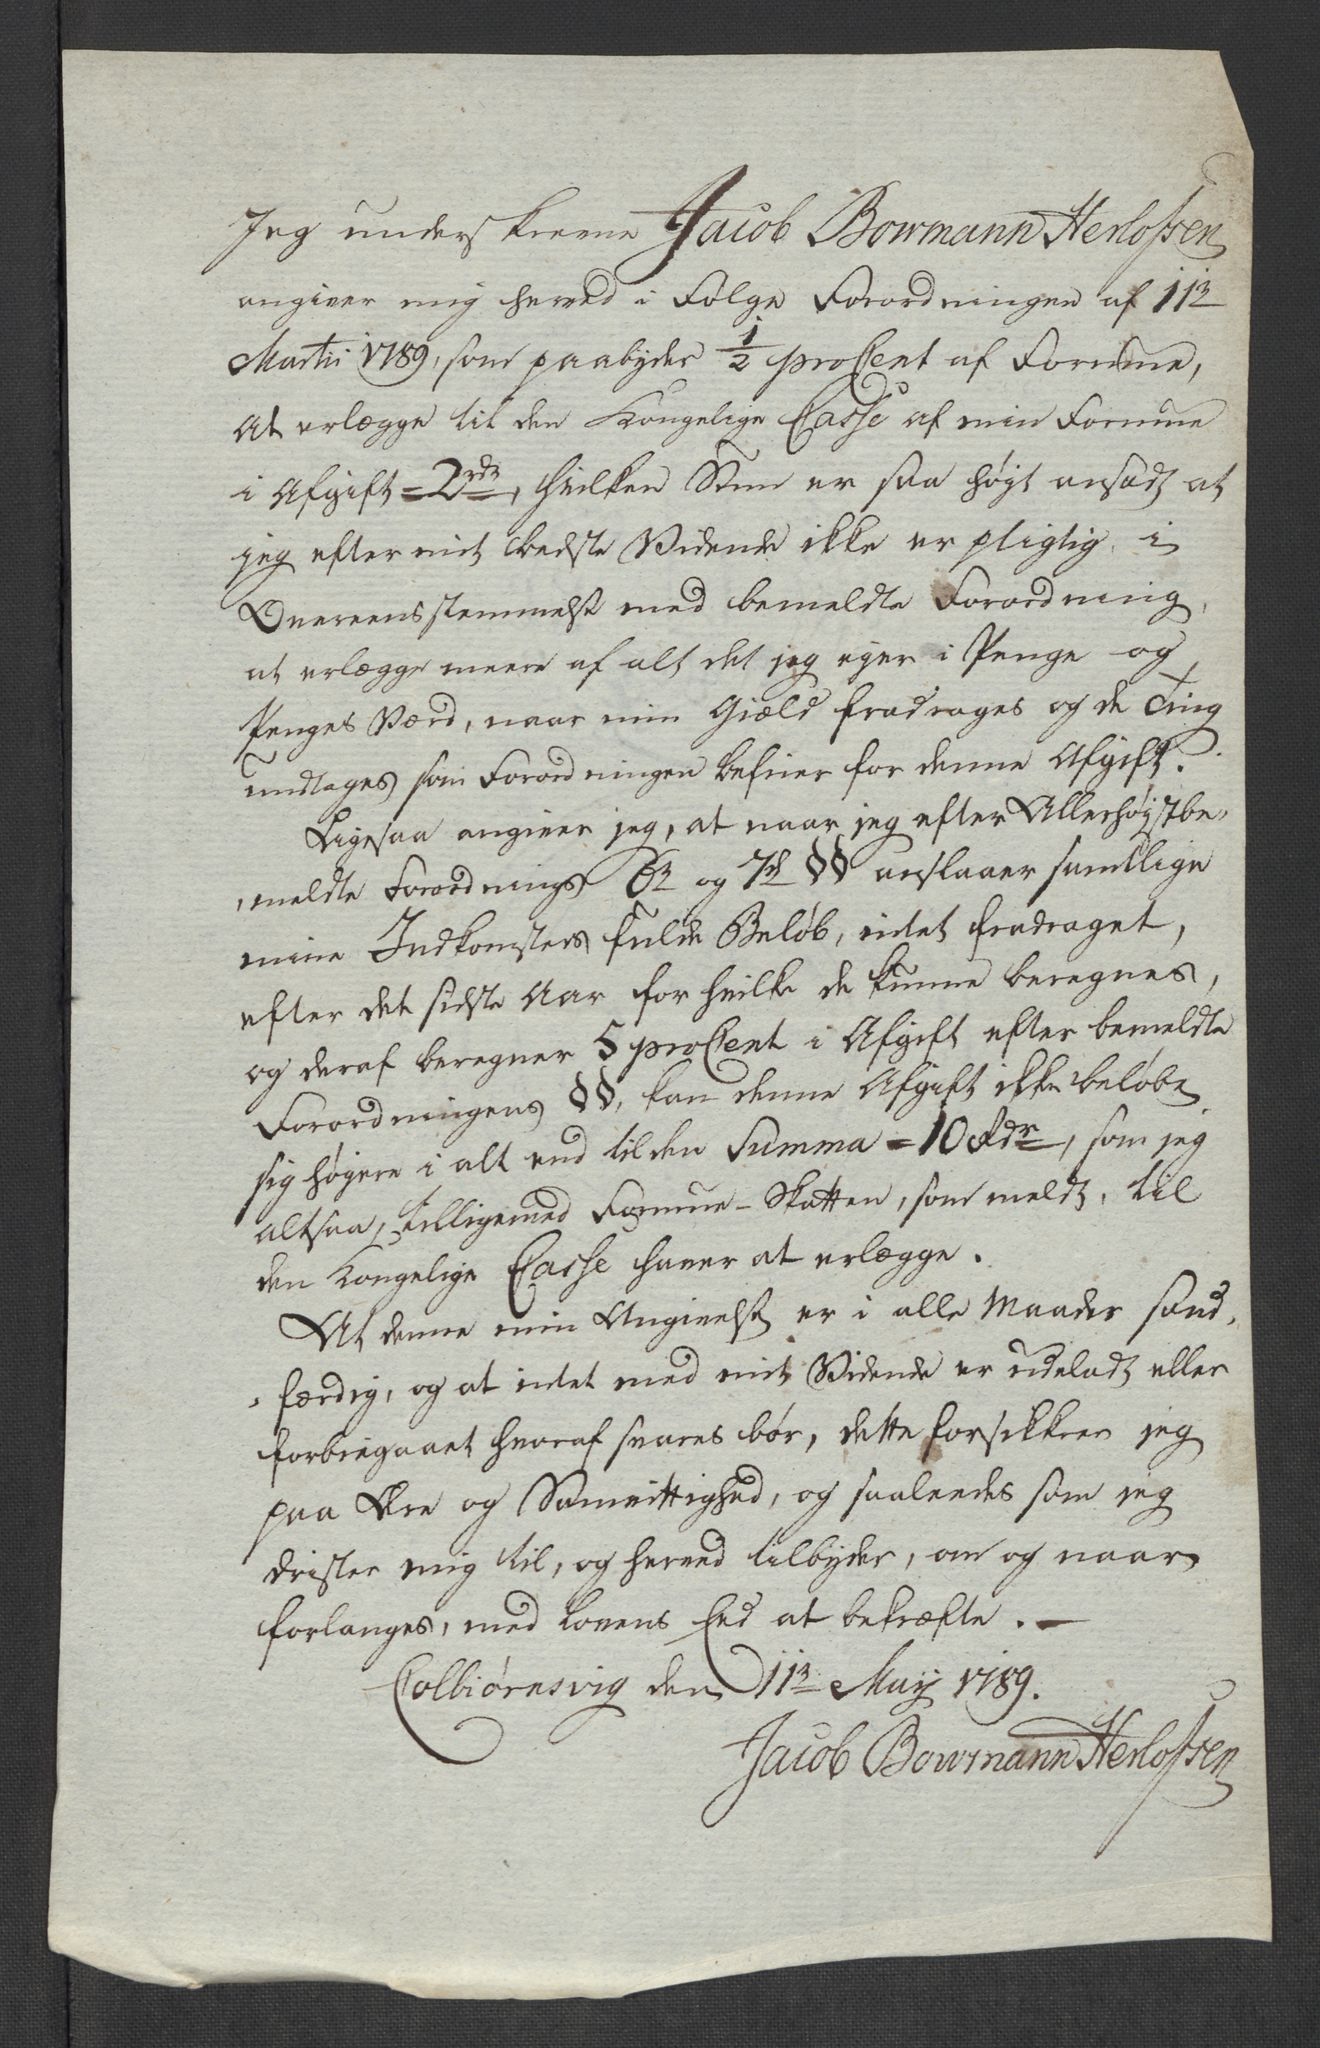 Jeg underskrevne Jacob Bowmann Herlofsen
angiver mig herved i Følge Forordningen af 11te
Martii 1789, som paabyder 1/2 proCent af Formue,
at erlægge til den Kongelige Casse af min Formue
i Afgift = 2rdr, hvilken Sum er saa høgt ansadt at
jeg efter mit bedste Vidende ikke er pligtig, i
Overeensstemmelse med bemeldte Forordning,
at erlægge meere af alt det jeg eyer i Penge og
Penges Værd, naar min Giæld fradrages og de Ting
undtages som Forordningen befrier for denne Afgift.
Ligesaa angiver jeg, at naar jeg efter Allerhøystbe-
meldte Forordnings 6te og 7de §§ anslaaer samtlige
mine Indkomsters fulde Beløb, intet fradraget,
efter det sidste Aar for hvilke de kunne beregnes,
og deraf beregner 5 proCent i Afgift efter bemeldte
Forordningens §§, kan denne Afgift ikke beløbe
sig høyere i alt end til den Summa = 10 Rdr, som jeg
altsaa, tilligemed Formue-Skatten, som meldt, til
den Kongelige Casse haver at erlægge.
At denne min Angivelse er i alle Maader sand-
færdig, og at intet med mit Vidende er udeladt eller
forbiegaaet hvoraf svares bør, dette forsikkrer jeg
paa Ære og Samvittighed, og saaledes som jeg
drister mig til, og herved tilbyder, om og naar
forlanges, med Lovens Eed at bekræfte. -
Colbiørnsvig den 11te Maij 1789.
Jacob Bowmann Herlofsen